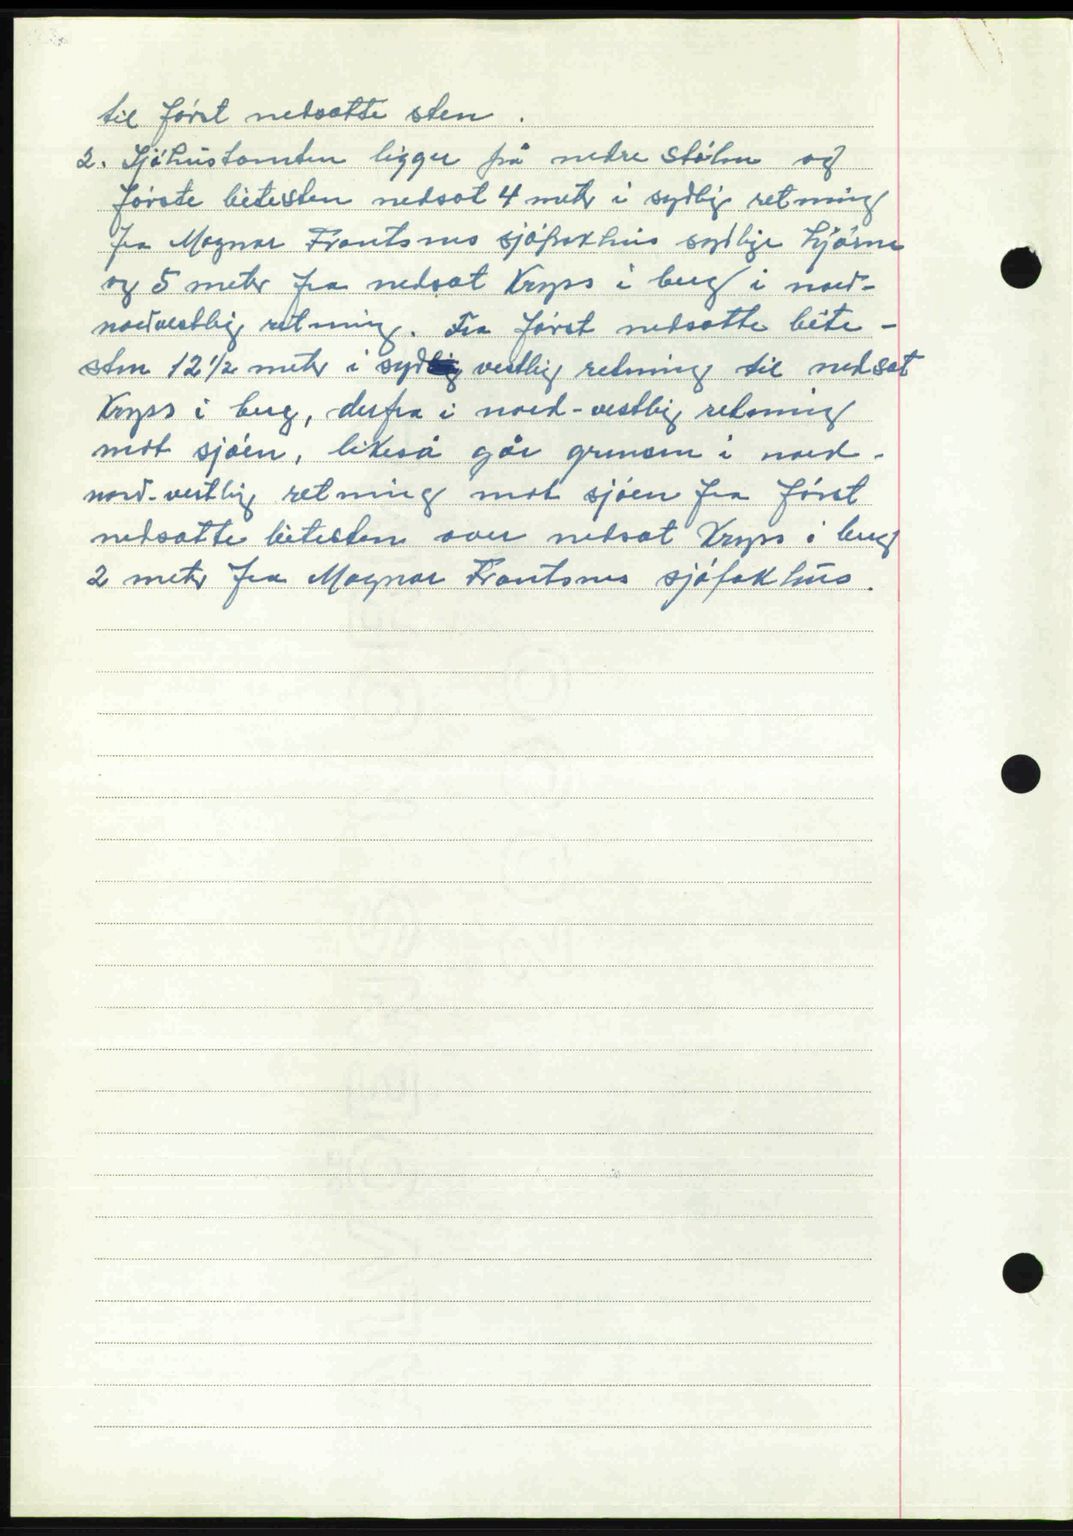 til først nedsatte sten .
2. Sjøhustomten ligger på nedre støln og
første bitesten nedsat 4 metr i sydlig retning
fra Magnar Frantsnes sjøfoxhus sydlige hjørne
og 5 metr fra nedsat Kryss i berg i nord-
nordvestlig retning. Fra først nedsatte bite -
sten 12 1/2 metr i syd vestlig retning til nedsat
Kryss i berg, derfra i nord-vestlig retning
mot sjøen, likeså går grensen i nord -
nord-vestlig retning mot sjøen fra først
nedsatte bitesten over nedsat Kryss i berg
2 metr fra Magnar Frantsnes sjøfoxhus .